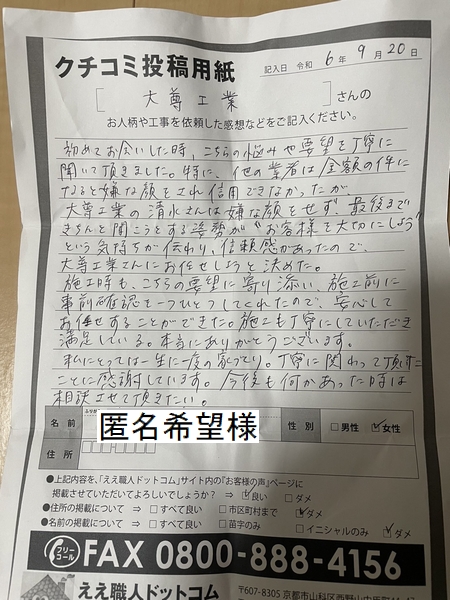 クチコミ投稿用紙
記入日 令和 6年 9月 20日
[ 大尊工業 ] さんの
お人柄や工事を依頼した感想などをご記入ください。
初めてお会いした時、こちらの悩みや要望を丁寧に
聞いて頂きました。特に、他の業者は金額の件に
なると嫌な顔をされ信用できなかったが
大尊工業の清水さんは嫌な顔をせず、最後まで
きちんと聞こうとする姿勢が"お客様を大切にしよう"
という気持ちが伝わり、信頼感があったので、
大尊工業さんにお任せしようと決めた。
施工時も、こちらの要望に寄り添い、施工前に
事前確認を一つひとつしてくれたので、安心して
お任せすることができた。施工も丁寧にしていただき
満足している。本当にありがとうございます。
私にとっては一生に一度の家づくり。丁寧に関わって頂けた
ことに感謝しています。今後も何かあった時は
相談させて頂きたい。
名前 匿名希望様 性別 □男性 ☑女性
住所
●上記内容を、「ええ職人ドットコム」サイト内の「お客様の声」ページに
掲載させていただいてよろしいでしょうか? ⇒ ☑良い □ダメ
●住所の掲載について ⇒ □すべて良い □市区町村まで ☑ダメ
●名前の掲載について ⇒ □すべて良い □苗字のみ □イニシャルのみ ☑ダメ
フリーコール FAX 0800-888-4156
ええ職人ドットコム
〒607-8305 京都市山科区西野山中